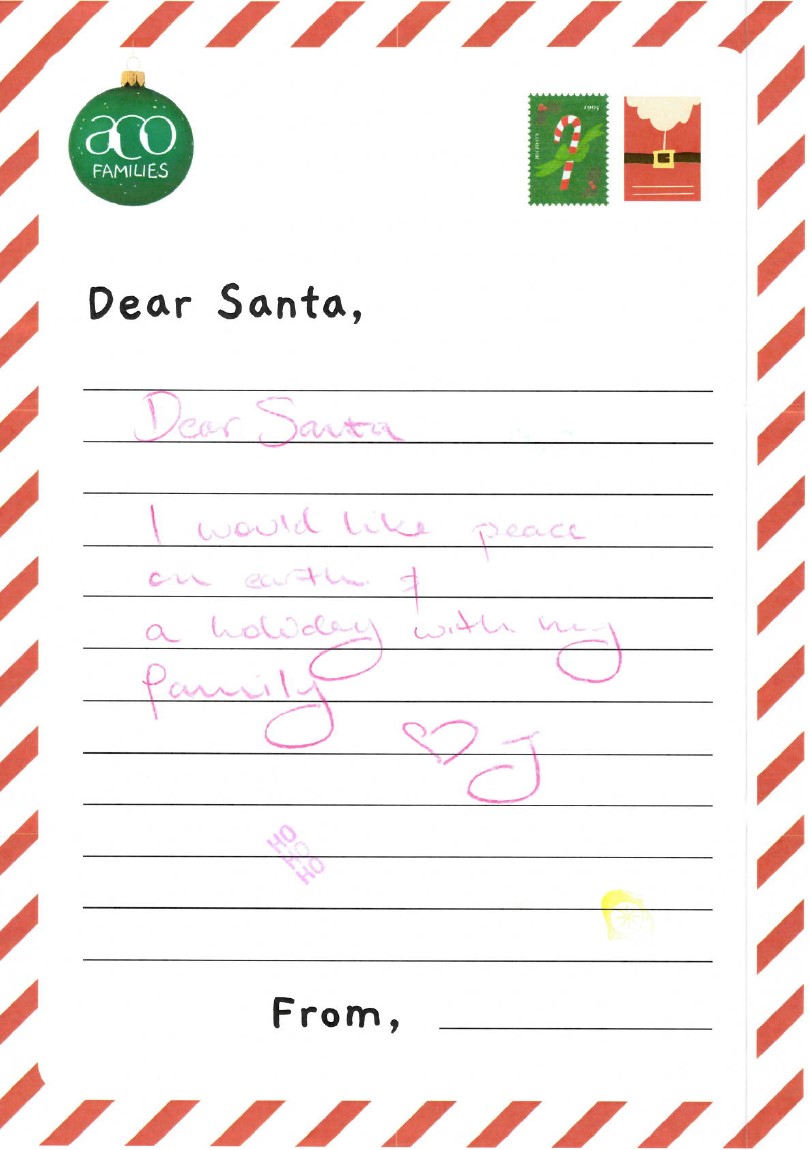 aco
FAMILIES
Dear Santa,
Dear Santa
I would like peace
on earth &
a holiday with my
family
♡ J
HO
HO
HO
From,